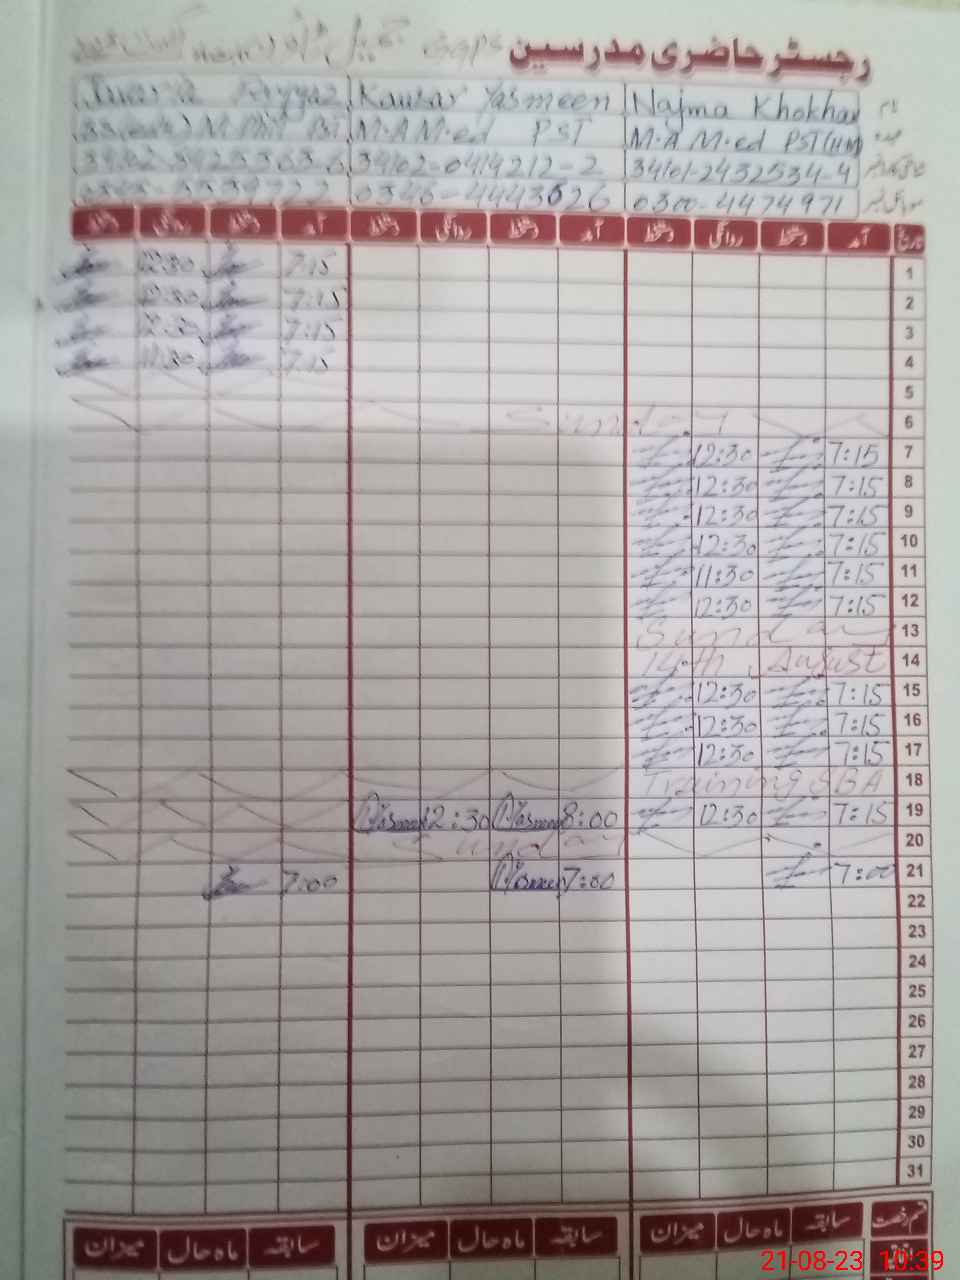 رجسٹر حاضری مدرسین GGPS
نام Najma Khokhar Kausar Yasmeen
عہدہ M.A M.ed PST (HM) M.A M.ed PST M.Phil PST
34101-2432534-4 34102-0414212-2
موبائل نمبر 0300-4474971 0346-4443626
تاریخ آمد دستخط روانگی دستخط آمد دستخط روانگی دستخط آمد دستخط روانگی دستخط
1 7:15 12:30
2 7:15 12:30
3 7:15 12:30
4 7:15 11:30
5
6 Sunday
7 7:15 12:30
8 7:15 12:30
9 7:15 12:30
10 7:15 12:30
11 7:15 11:30
12 7:15 12:30
13 Sunday
14 14th August
15 7:15 12:30
16 7:15 12:30
17 7:15 12:30
18 Training SBA
19 7:15 12:30 8:00 12:30
20 Sunday
21 7:00 7:00 7:00
22
23
24
25
26
27
28
29
30
31
قسم رخصت سابقہ ماہ حال میزان سابقہ ماہ حال میزان سابقہ ماہ حال میزان
21-08-23 10:39